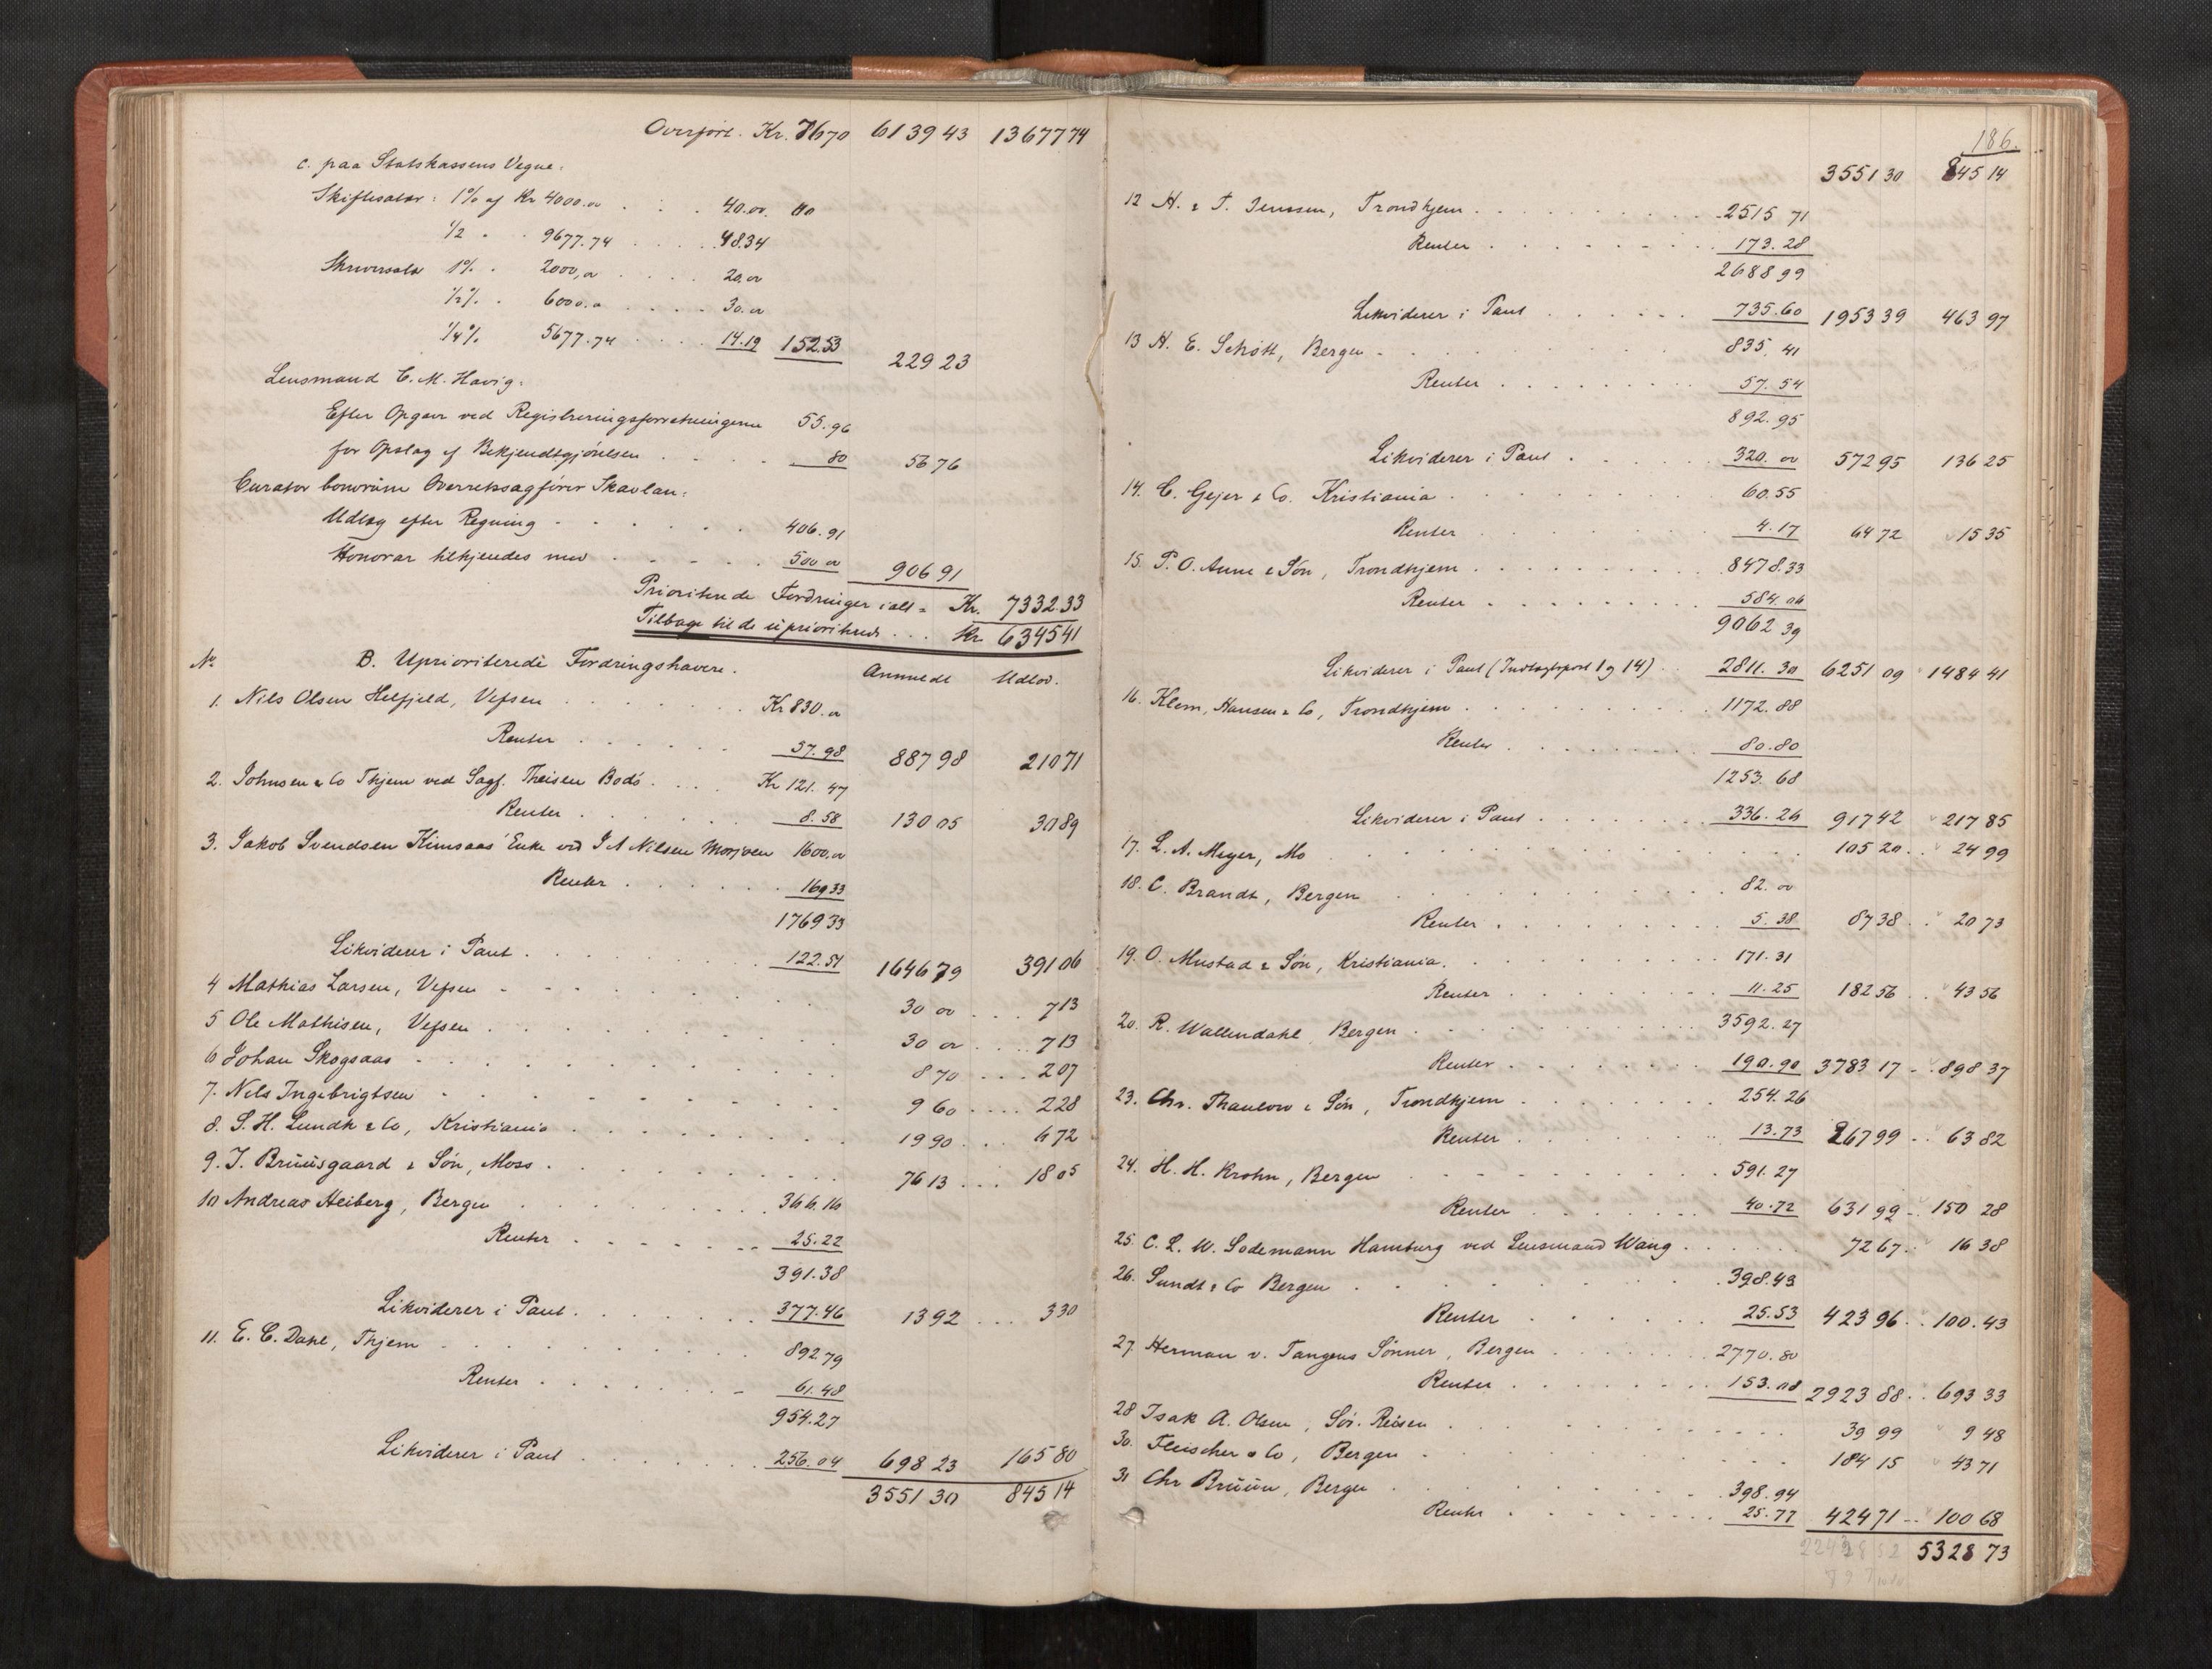 Overført. Kr. 7670 6139 43 13677 74
c. paa Statskassens Vegne:
Skiftesalær: 1% af Kr 4000.00 . . . 40.00
1/2 " . 9677.74 . . . . 48.34
Skriversalær 1% . 2000,00 . . . . 20,00
1/2% . 6000.00 . . . . 30.00
1/4% 5677.74 . . . . 14.19 152.53 229 23
Lensmand C. M. Havig:
Efter Opgaver ved Registreringsforretningerne 55.96
for Opslag af Bekjendtgjørelsen . . . . 80 56 76
Curator bonorum Overretssagfører Skavlan:
Udlæg efter Regning . . . . 406.91
Honorar tilkjendes med . . . . 500 00 906 91
Prioriterede Fordringer ialt = Kr. 7332.33
Tilbage til de uprioriterede . . . Kr 6345 41
No B. Uprioriterede Fordringshavere. Anmeldt Udlod.
1. Nils Olsen Helfjeld, Vefsen . . . . Kr 830.00
Renter . . . . 57.98 887 98 210 71
2. Johnsen & Co Thjem ved Sagf. Theisen Bodø . . . . Kr 121.47
Renter . . . . 8.58 130 05 30 89
3. Jakob Svendsen Kimsaas' Enke ved J A Nilsen Mosjøen 1600,00
Renter . . . . 169 33
1769 33
Likviderer i Pant . . . . 122.51 1646 79 391 06
4 Mathias Larsen, Vefsen . . . . 30 00 . . . . 7 13
5 Ole Mathisen, Vefsen . . . . 30 00 . . . . 7 13
6 Johan Skogsaas . . . . 8 70 . . . . 2 07
7. Nils Ingebrigtsen . . . . 9 60 . . . . 2 28
8. S. H. Lundh & Co, Kristiania . . . . 19 90 . . . 4 72
9. J. Bruusgaard & Søn, Moss . . . . 76 13 . . . 18 05
10 Andreas Heiberg, Bergen . . . . 366.16
Renter . . . . 25.22
391.38
Likviderer i Pant . . . . 377.46 13 92 . . . 3 30
11. E. C. Dahl, Thjem . . . . 892 79
Renter . . . . 61.48
954.27
Likviderer i Pant . . . . 256.04 698 23 165 80
3551 30 845 14
186.
3551 30 845 14
12 H. & F. Jenssen, Trondhjem . . . . 2515 71
Renter . . . . 173.28
2688 99
Likviderer i Pant . . . . 735.60 1953 39 463 97
13 H. E. Schøtt, Bergen . . . . 835,41
Renter . . . . 57.54
892.95
Likviderer i Pant . . . . 320.00 572 95 136 25
14. C. Gejer & Co. Kristiania . . . . 60.55
Renter . . . . 4.17 64 72 15 35
15. P. O. Aune & Søn, Trondhjem . . . . 8478.33
Renter . . . . 584.06
9062 39
Likviderer i Pant (Indtægtspost 1 og 14) . . 2811.30 6251 09 1484 41
16. Klem, Hansen & Co, Trondhjem . . . . 1172.88
Renter . . . . 80.80
1253.68
Likviderer i Pant . . . . 336.26 917 42 217 85
17. L. A. Meyer, Mo . . . . 105 20 . . 24 99
18. C. Brandt, Bergen . . . . 82.00
Renter . . . . 5.38 87 38 . . 20 73
19. O. Mustad & Søn, Kristiania. . . . . 171.31
Renter . . . . 11.25 182 56 . . 43 56
20. R. Wallendahl, Bergen . . . . 3592.27
Renter . . . . 190.90 3783 17 . . 898 37
23. Chr. Thaulow & Søn, Trondhjem . . . . 254.26
Renter . . . . 13.73 267 99 . . 63 82
24. H. H. Krohn, Bergen . . . . 591.27
Renter . . . . 40.72 631 99 . . 150 28
25. C. L. W. Sodemann Hamburg ved Lensmand Wang . . . . 72 67 . . 16 38
26. Sundt & Co Bergen . . . . 398.43
Renter . . . . 25.53 423 96 . . 100.43
27 Herman v. Tangens Sønner, Bergen . . . . 2770.80
Renter . . . . 153.08 2923 88 . . 693 33
28 Isak A. Olsen, Sør. Reisen . . . . 39 99 9 48
30. Fleischer & Co, Bergen . . . . 184 15 43 71
31 Chr Bruun, Bergen . . . . 398.94
Renter . . . . 25.77 424 71 . . 100 68
5328 73